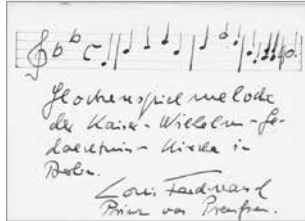 Glockenspielmelodie
der Kaiser-Wilhelm-Ge-
daechtnis-Kirche in
Berlin.
Louis Ferdinand
Prinz von Preußen.